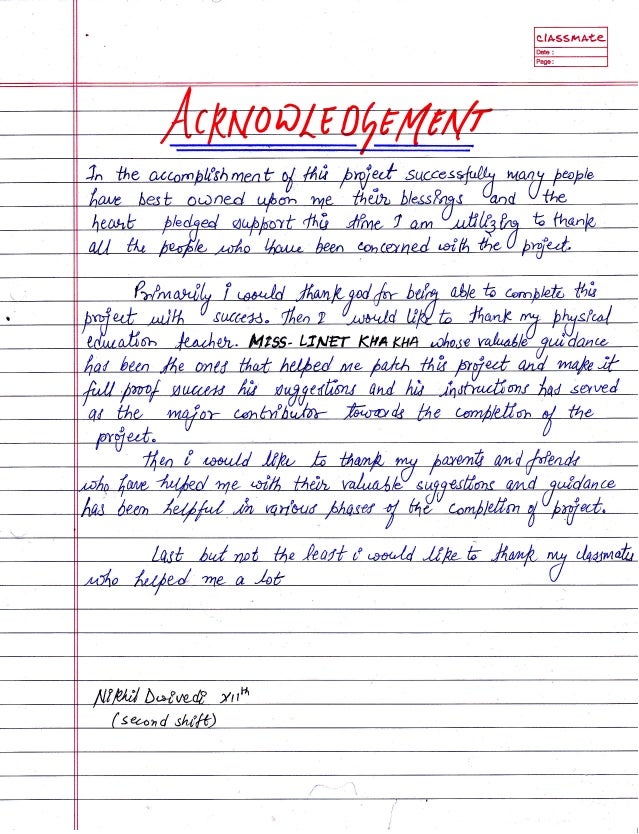 classmate
Date :
Page :
ACKNOWLEDGEMENT
In the accomplishment of this project successfully many people
have best owned upon me their blessings and the
heart pledged support this time I am utilizing to thank
all the people who have been concerned with the project.
Primarily i would thank god for being able to complete this
project with success. Then I would like to thank my physical
education teacher. MISS- LINET KHA KHA whose valuable guidance
had been the ones that helped me patch this project and make it
full proof success his suggestions and his instructions has served
as the major contributor towards the completion of the
project.
Then i would like to thank my parents and friends
who have helped me with their valuable suggestions and guidance
has been helpful in various phases of the completion of project.
Last but not the least i would like to thank my classmates
who helped me a lot
Nikhil Dwivedi XIIth
(second shift)